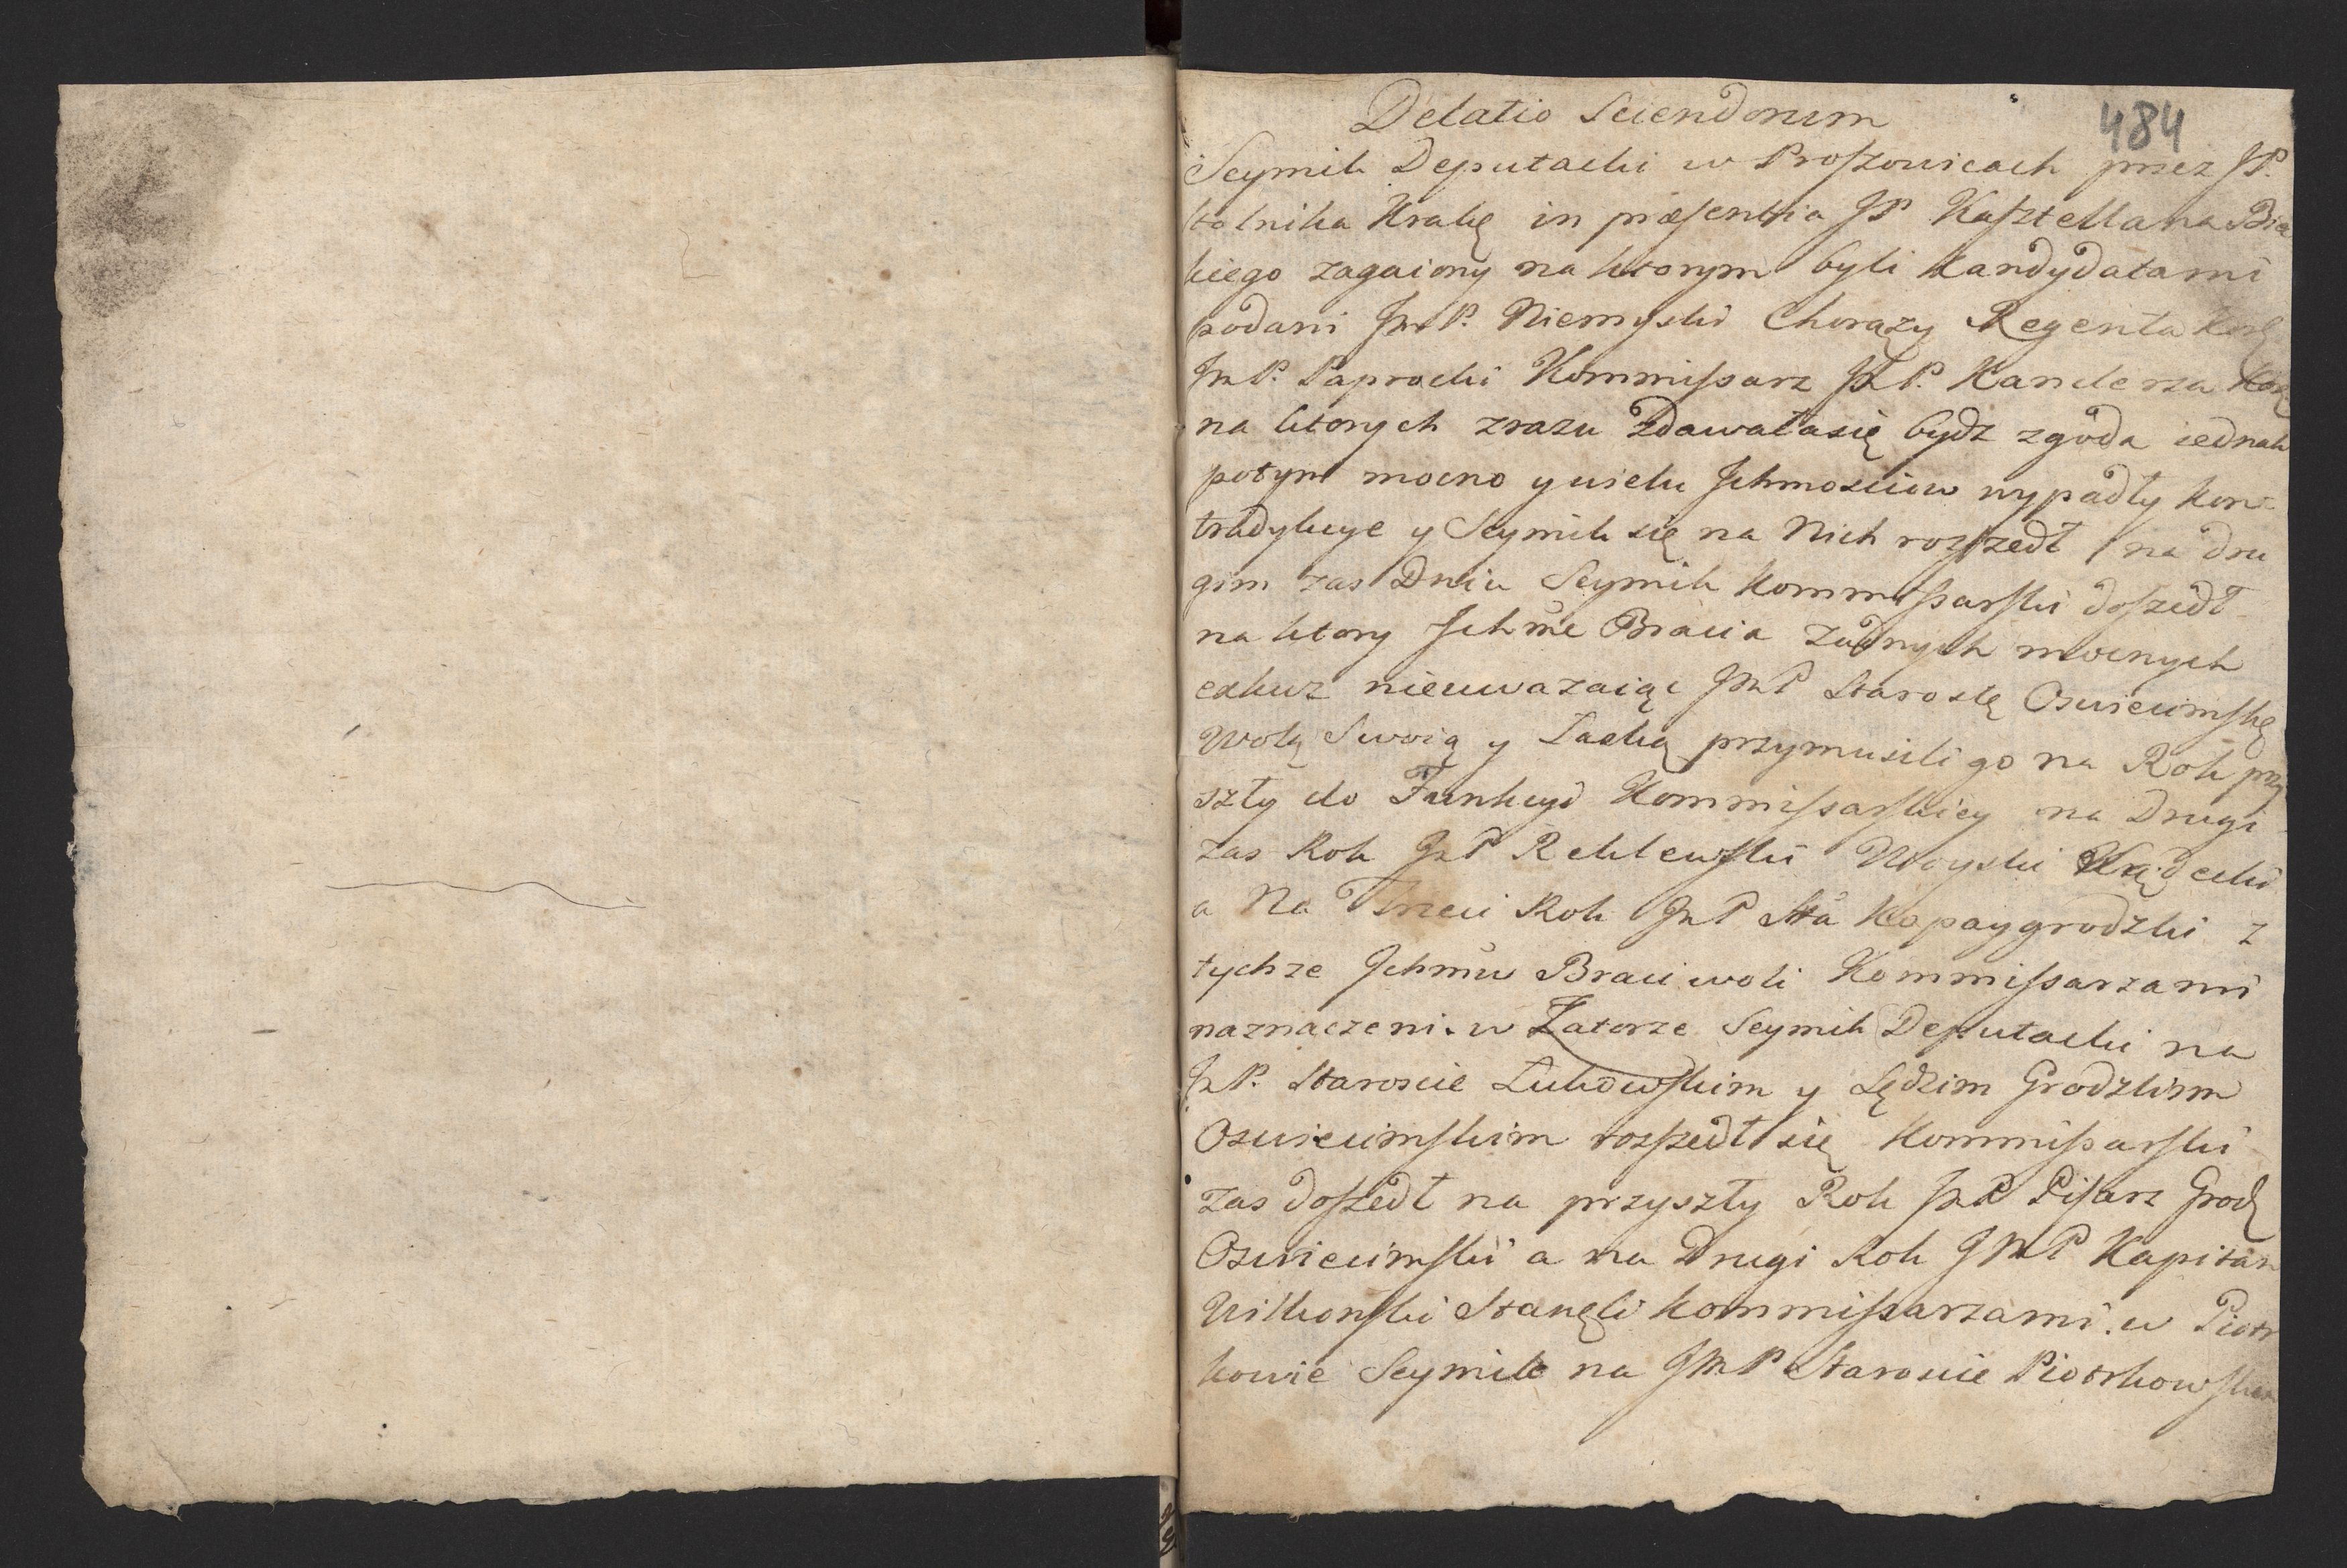 Delatio Sciendorum
484
Seymik Deputacki w Proszowicach przez JP.
Stolnika Krakę in præsentia JP Kasztellana Bie
kiego zagaiony na ktorym byli Kandydatami
podani JmP. Niemyski Chorąży Regenta Korę
JmP. Paprocki Kommissarz JmP. Kanclerza Korę
na ktorych zrazu zdawałasię bydz zgoda iednak
potym mocno y wielu Jchmosciow wypadły kon-
tradykcye y Seymik się na Nich rozszedł na dru
gim zas Dniu Seymik Kommissarski doszedł
na ktory Jchme Bracia żadnych mocnych
exkuz nieuwazaiąc JmP Starostę Oswiecimskę
Wolą Swoią y Łaską przymusili go na Rok przy
szły do Funkcyi Kommissarskiey na Drugi
zas Rok JmP Reklewski Woyski
a Na Trzeci Rok JmP Sta Kopaygrodzki z
tychze Jchmw Braci woli Kommissarzami
naznaczeni. w Zatorze Seymik Deputacki na
JmP. Staroscie Łukowskim y Sędzim Grodzkim
Oswiecimskim rosszedł się Kommissarski
zas doszedł na przyszły Rok JmP Pisarz Grodz
Oswiecimski a na Drugi Rok JMP Kapitan
Wilkonski Stanęli Kommissarzami. w Piotr
kowie Seymik na JMP Staroscie Piotrkowskim